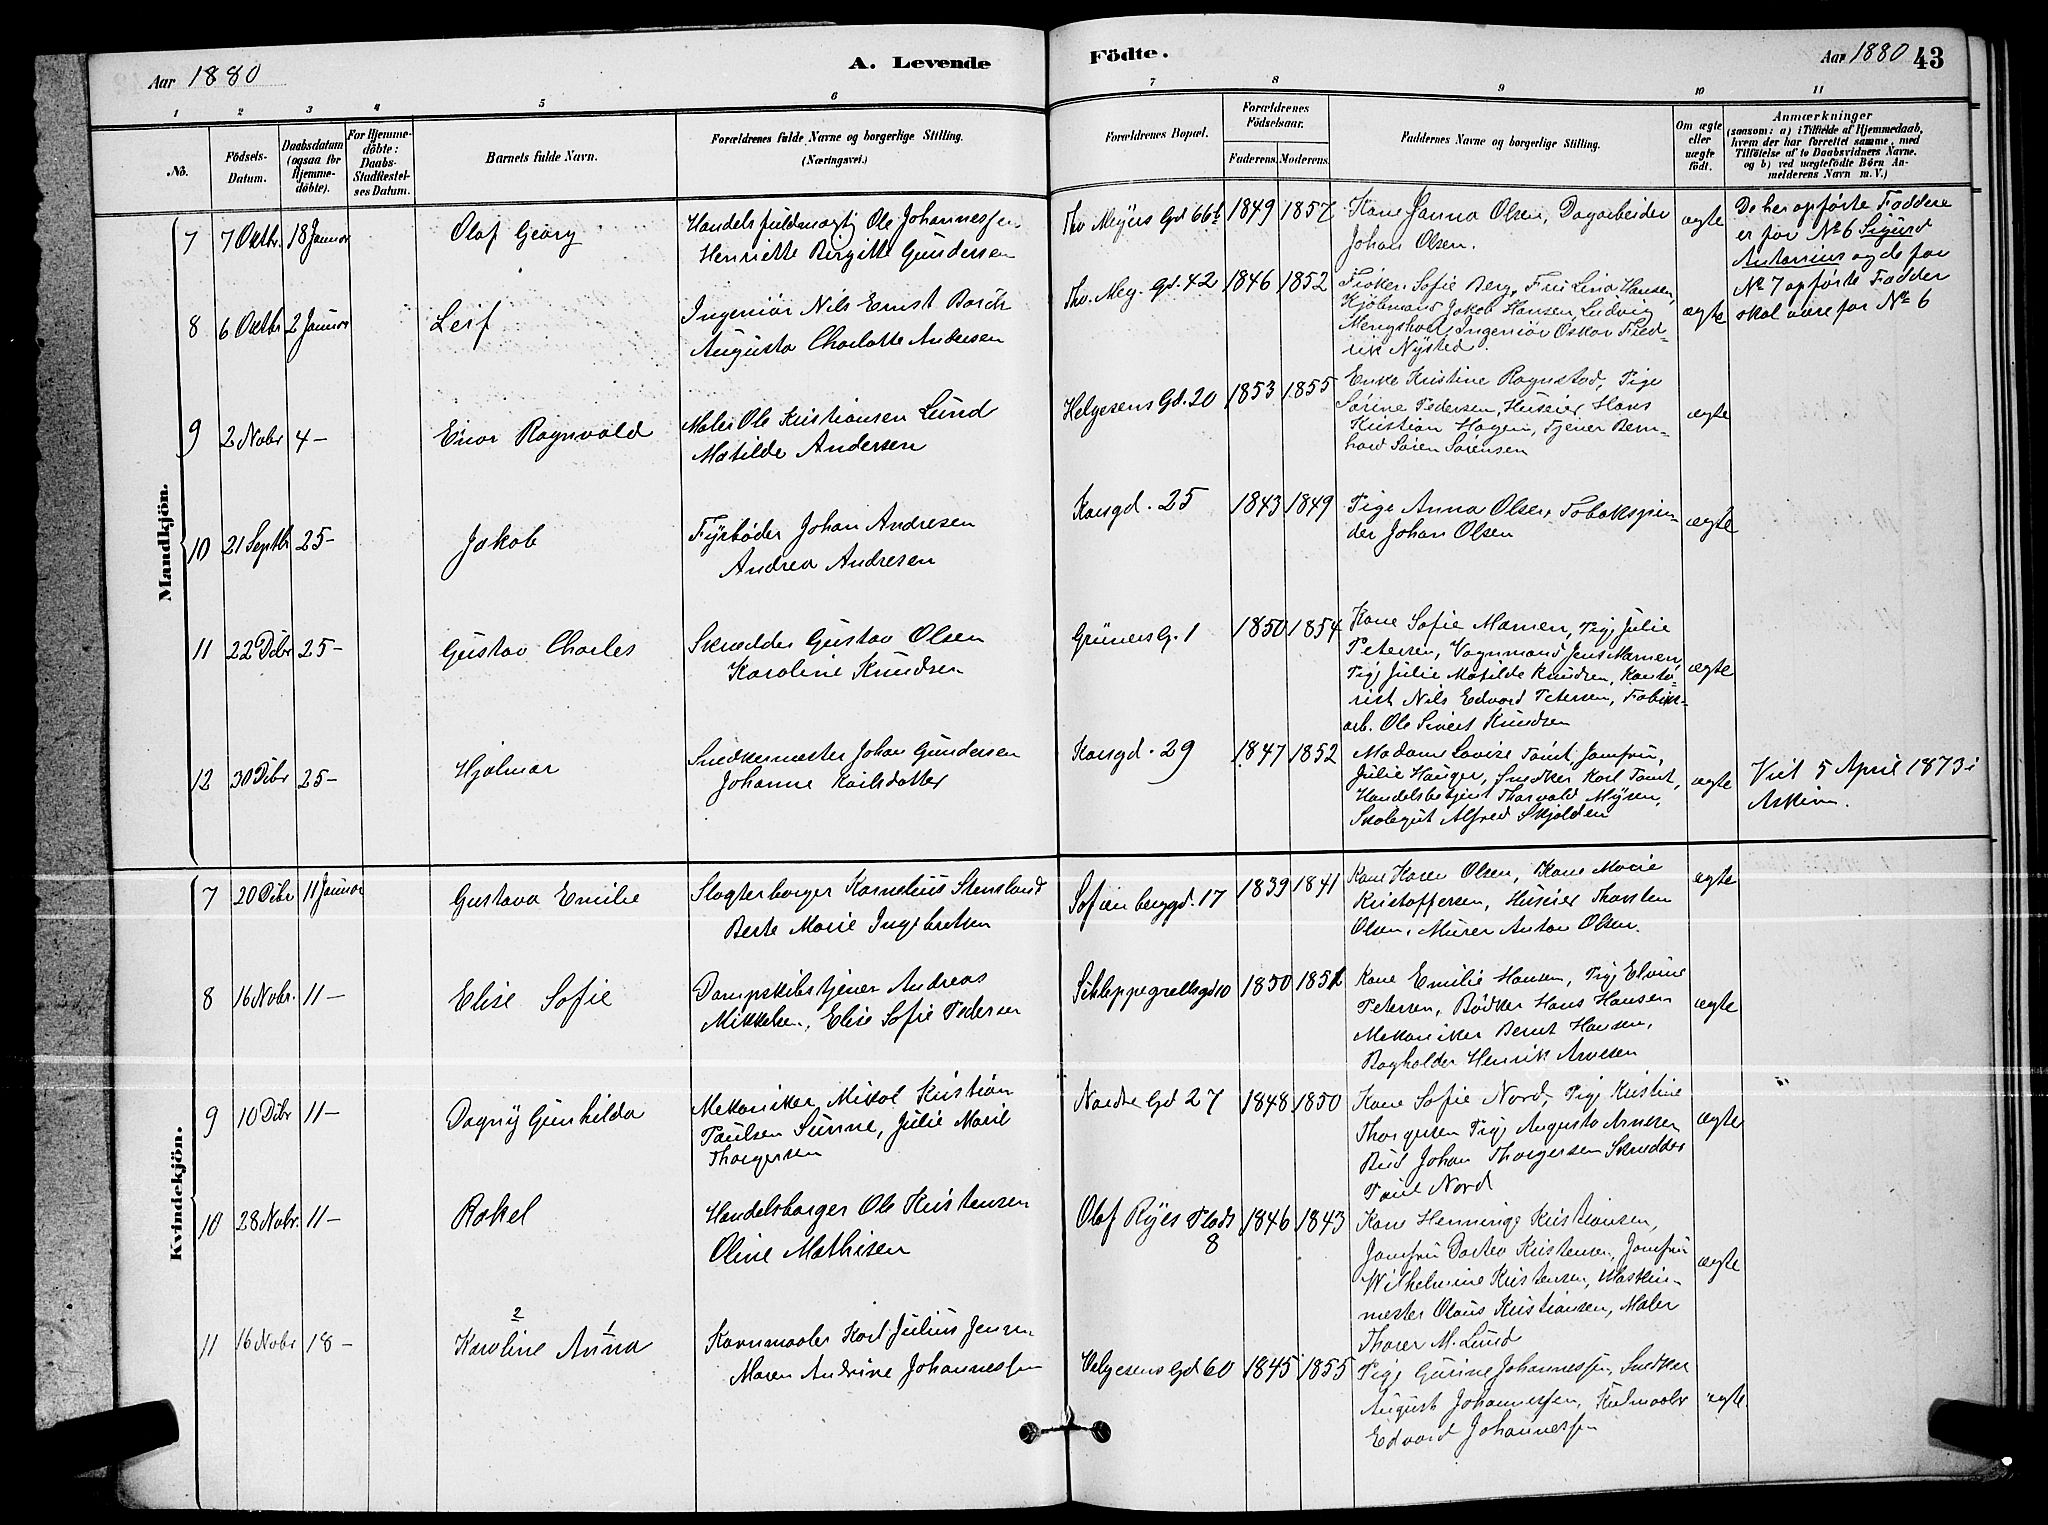 Aar 1880
A. Levende
Födte.
Aar 1880
43
1
2
3
4
5
6
7
8
9
10
11
No.
Födsels-
Datum.
Daabsdatum
(ogsaa for
Hjemme-
döbte).
For Hjemme-
döbte:
Daabs-
Stadfæstel-
ses Datum.
Barnets fulde Navn.
Forældrenes fulde Navne og borgerlige Stilling.
(Næringsvei.)
Forældrenes Bopæl.
Forældrenes
Födselsaar.
Faderens.
Moderens.
Faddernes Navne og borgerlige Stilling.
Om ægte
eller
uægte
født.
Anmærkninger
(saasom: a) i Tilfælde af Hjemmedaab,
hvem der har forrettet samme, med
Tilføielse af to Daabsvidners Navne.
og b) ved uægtefödte Börn An-
melderens Navn m. V.)
Mandkjön.
7
7 Oktbr.
18 Januar
Olaf Georg
Handelsfuldmægtig Ole Johannessen
Henriette Birgitte Gundersen
Thv. Meyers Gd 66b
1849
1857
Kone Janna Olsen, Dagarbeider
Johan Olsen.
ægte
De her opførte Faddere
er for No 6 Sigurd
Antonius og de for
No 7 opførte Fadder
skal være for No 6
8
6 Oktbr
2 Januar
Leif
Ingeniør Nils Ernst
Augusta Charlotte Andersen
Thv. Mey. Gd. 42
1846
1852
Frøken Sofie Berg, Fru Lina Hansen,
Kjøbmand Jakob Hansen, Ludvig
Ingeniør Oskar Fred-
rik Nysted.
ægte
9
2 Nobr
4 -
Einar Ragnvald
Maler Ole Kristiansen Lund
Matilde Andersen
Helgesens Gd. 20
1853
1855
Enke Kristine Rognstad, Pige
Sørine Pedersen, Husier Hans
Kristian Hagen, Tjener Bern-
hard Søren Sørensen
ægte
10
21 Septbr
25 -
Jakob
Fyrbøder Johan Andresen
Andrea Andresen
Karlsgd. 25
1843
1849
Pige Anna Olsen, Tobakspin-
der Johan Olsen
ægte
11
22 Dcbr
25 -
Gustav Charles
Skrædder Gustav Olsen
Karoline Knudsen
Grüners G. 1
1850
1854
Kone Sofie Marnen, Pige Julie
Petersen, Vognmand Jens Marnen,
Pige Julie Matilde Knudsen, Konto-
rist Nils Edvard Petersen, Fabrik-
arb. Ole Sivert Knudsen
ægte
12
30 Dcbr
25 -
Hjalmar
Snedkermester Johan Gundersen
Johanne Karlsdatter
Karlsgd. 29
1847
1852
Madam Lovise Tomt, Jomfru
Julie Hauger, Snedker Karl Tomt,
Handelsbetjent Thorvald Mysen,
Skolegut Alfred Skjolden
ægte
Viet 5 April 1873 i
Askim.
Kvindekjön.
7
20 Dcbr
11 Januar
Gustava Emilie
Slagterborger Kornelius Stensland
Berte Marie Ingebretsen
Sofienberggd. 17
1839
1841
Kone Karen Olsen, Kone Marie
Kristoffersen, Husier Thorsten
Olsen, Murer Anton Olsen.
ægte
8
16 Nobr.
11 -
Elise Sofie
Dampskibstjener Andreas
Mikkelsen, Elise Sofie Pedersen
Schleppegrellsgd 10
1850
1851
Kone Emilie Hansen, Pige Elvine
Petersen, Bødker Hans Hansen
Mekaniker Bernt Hansen,
Bogholder Henrik Arnesen
ægte
9
10 Dcbr
11 -
Dagny Gunhilda
Mekaniker Mikal Kristian
Paulsen Sunne, Julie Marie
Thorgersen
Nordre Gd 27
1848
1850
Kone Sofie Nord, Pige Kristine
Thorgersen Pige Augusta Arnesen
Bud Johan Thorgersen Skrædder
Paul Nord
ægte
10
28 Nobr.
11 -
Rakel
Handelsborger Ole Kristensen
Oline Mathisen
Olaf Ryes Plads
8
1846
1843
Kone Henninge Kristiansen,
Jomfru Dortea Kristensen, Jomfru
Wilhelmine Kristensen, Maskin-
mester Olaus Kristiansen, Maler
Thorer M. Lund
ægte
11
16 Nobr
18 -
2 1
Karoline Anna
Kornmaaler Karl Julius Jensen
Maren Andrine Johannessen
Helgesens Gd 60
1845
1855
Pige Gurine Johannessen, Snedker
August Johannessen, Kulmaaler
Edvard Johannessen
ægte